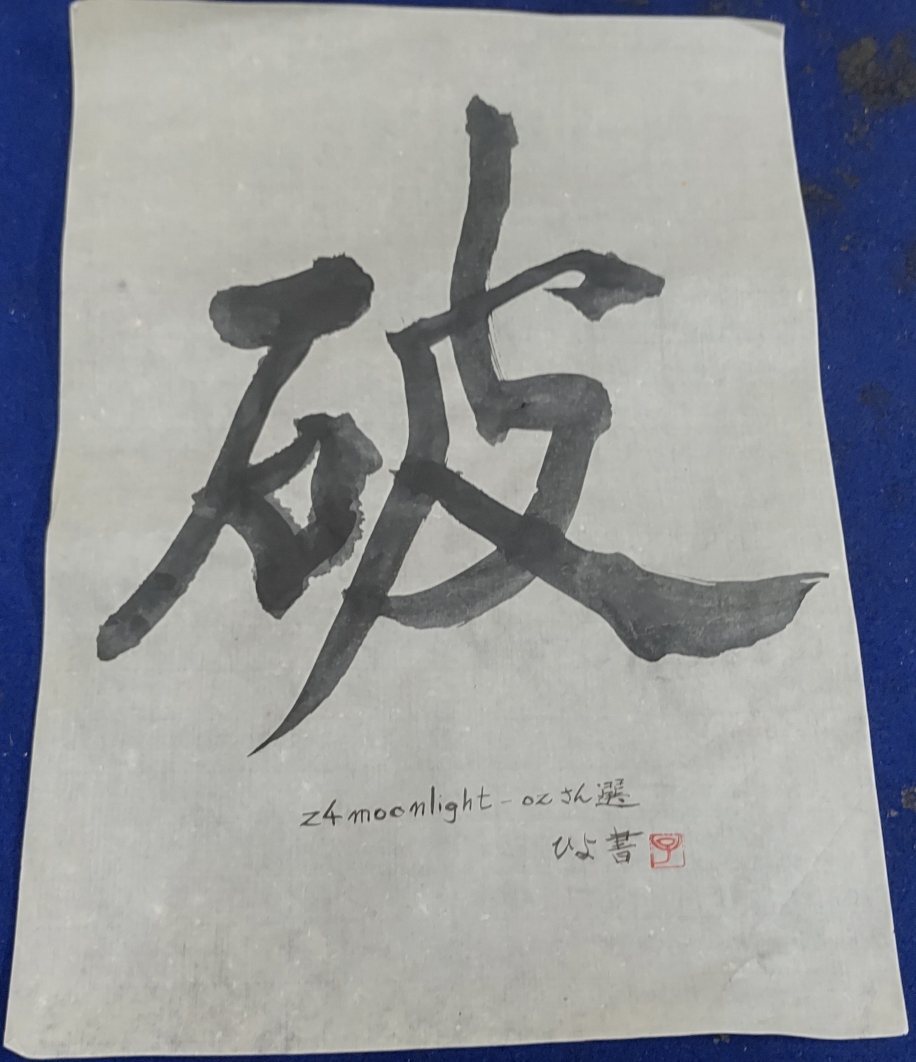 破
z4moonlight-ozさん選
ひよ書